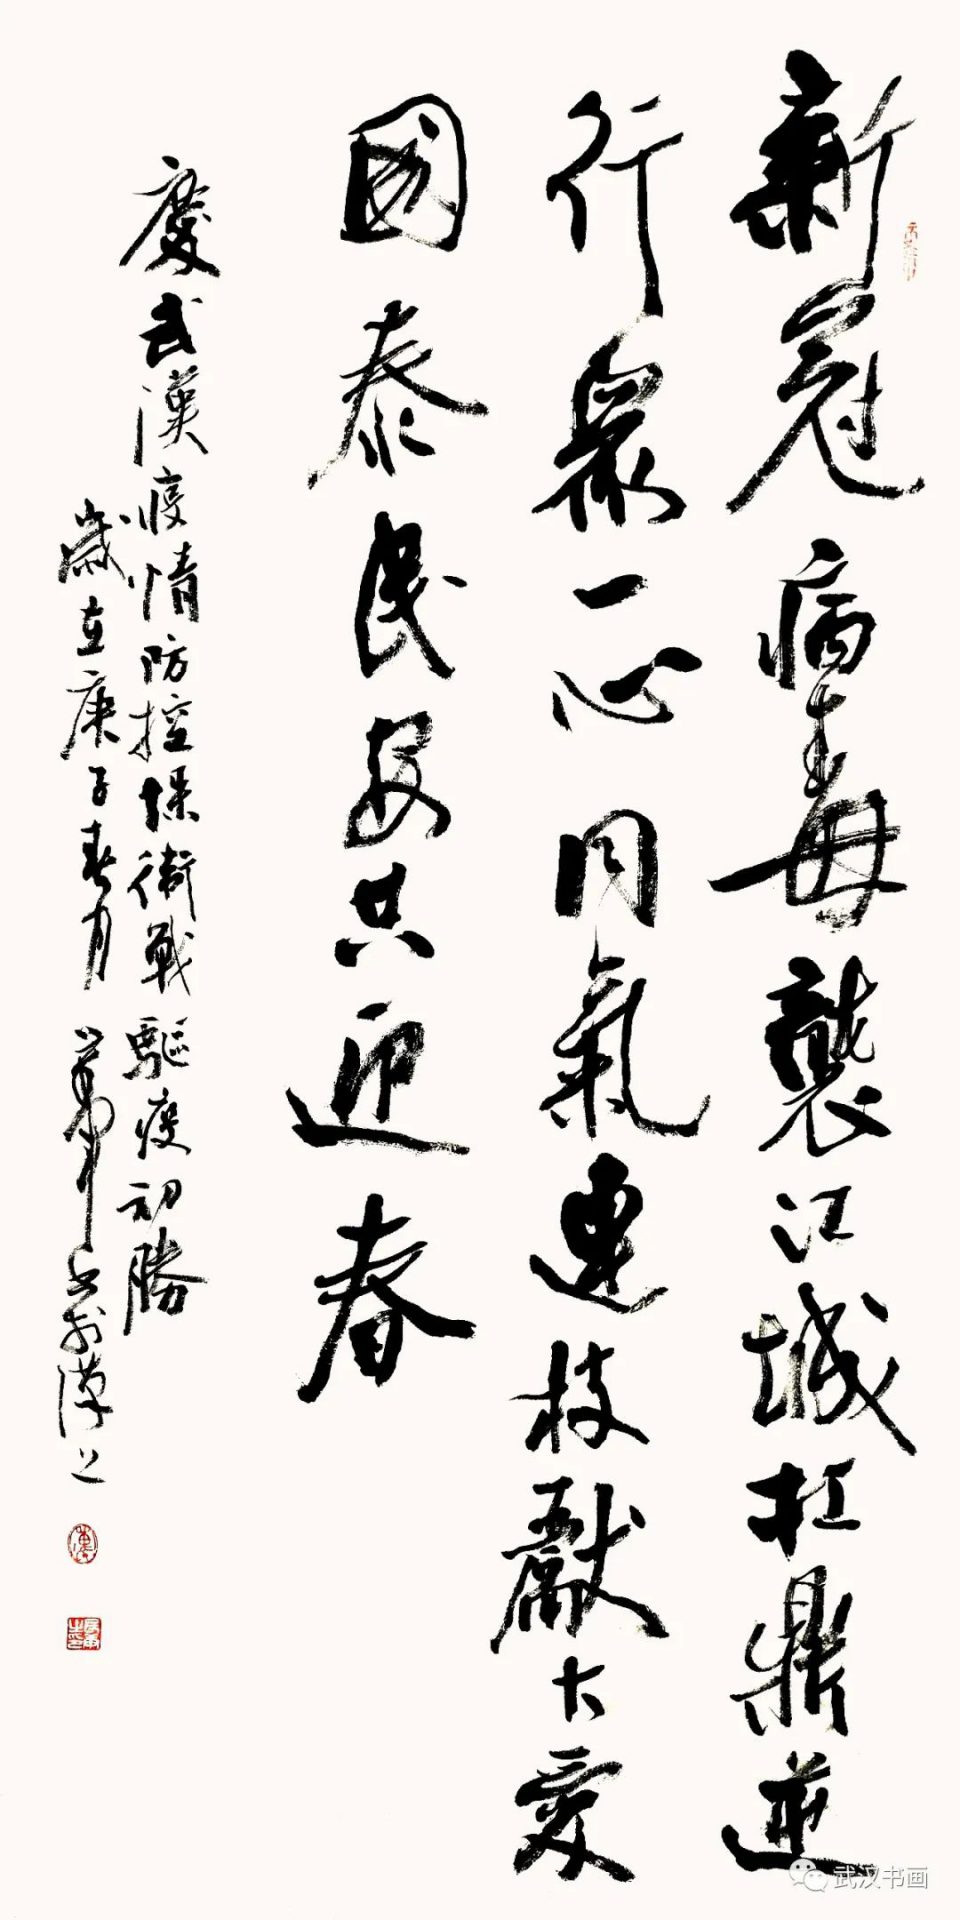 新冠病毒襲江城扛鼎逆
行眾一心同氣連枝獻大愛
國泰民安共迎春
慶武漢疫情防控保衛戰驅疫初勝
歲在庚子春月
書於漢上
武汉书画